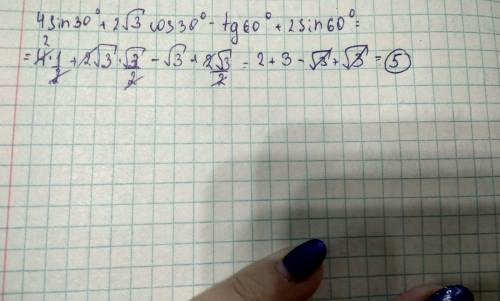 4sin30° + 2√3 cos30° - tg60° + 2sin60° =
= 4·1/2 + 2√3·√3/2 - √3 + 2√3/2 = 2 + 3 - √3 + √3 = 5